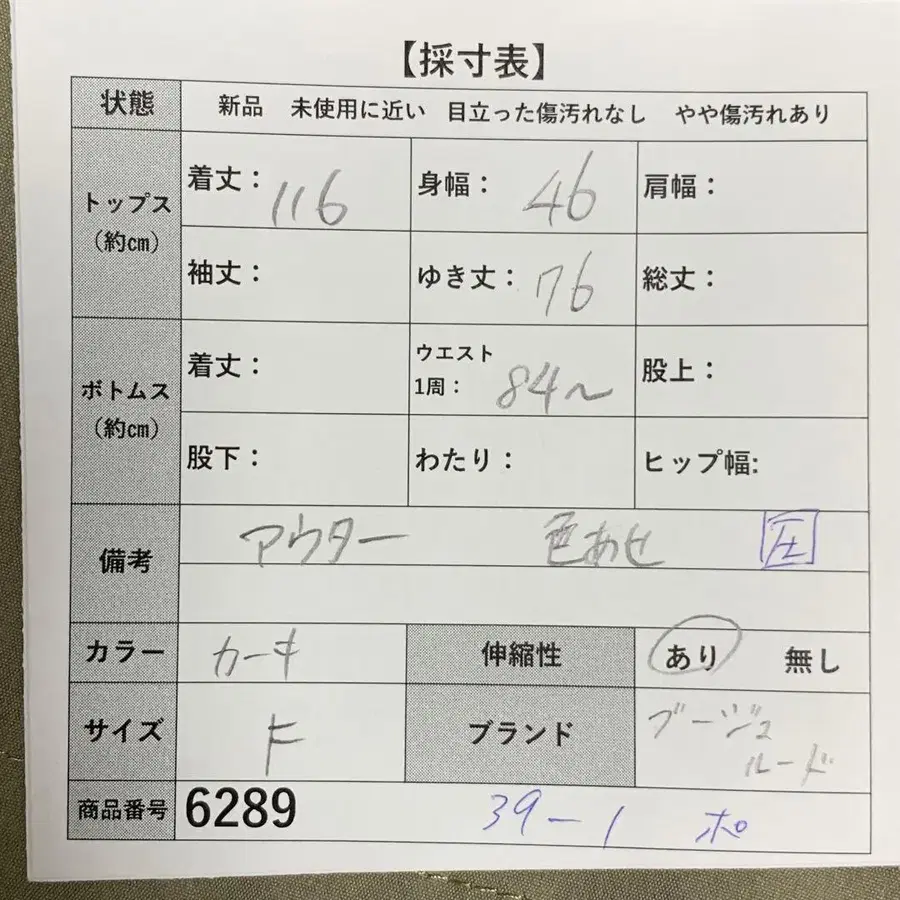 【採寸表】
状態 新品 未使用に近い 目立った傷汚れなし やや傷汚れあり
トップス（約㎝） 着丈： 116 身幅： 46 肩幅：
袖丈： ゆき丈： 76 総丈：
ボトムス（約㎝） 着丈： ウエスト1周： 84〜 股上：
股下： わたり： ヒップ幅:
備考 アウター 色あせ 圧
カラー カーキ 伸縮性 あり 無し
サイズ F ブランド ブージュ
ルード
商品番号 6289 39-1 ポ